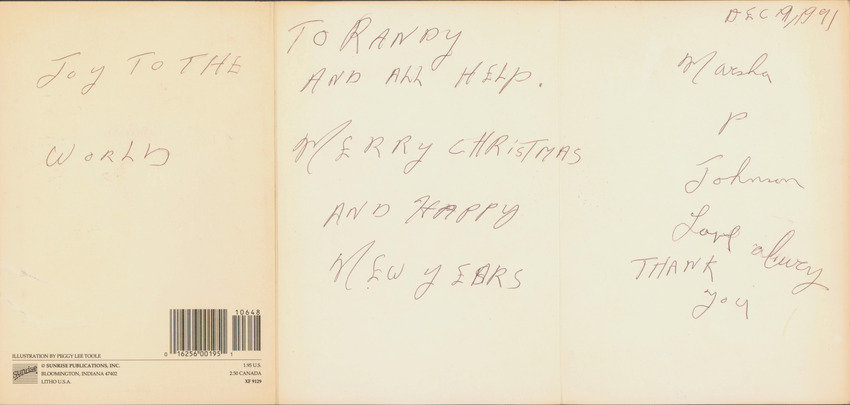 JOY TO THE
WORLD
10648
0 16256 00195 1
ILLUSTRATION BY PEGGY LEE TOOLE
Sunrise
© SUNRISE PUBLICATIONS, INC.
BLOOMINGTON, INDIANA 47402
LITHO U.S.A.
1.95 U.S.
2.50 CANADA
XF 9119
TO RANDY
AND ALL HELP.
MERRY CHRISTMAS
AND HAPPY
NEW YEARS
DEC 19/1991
Marsha
P
Johnson
Love alwey
THANK
you